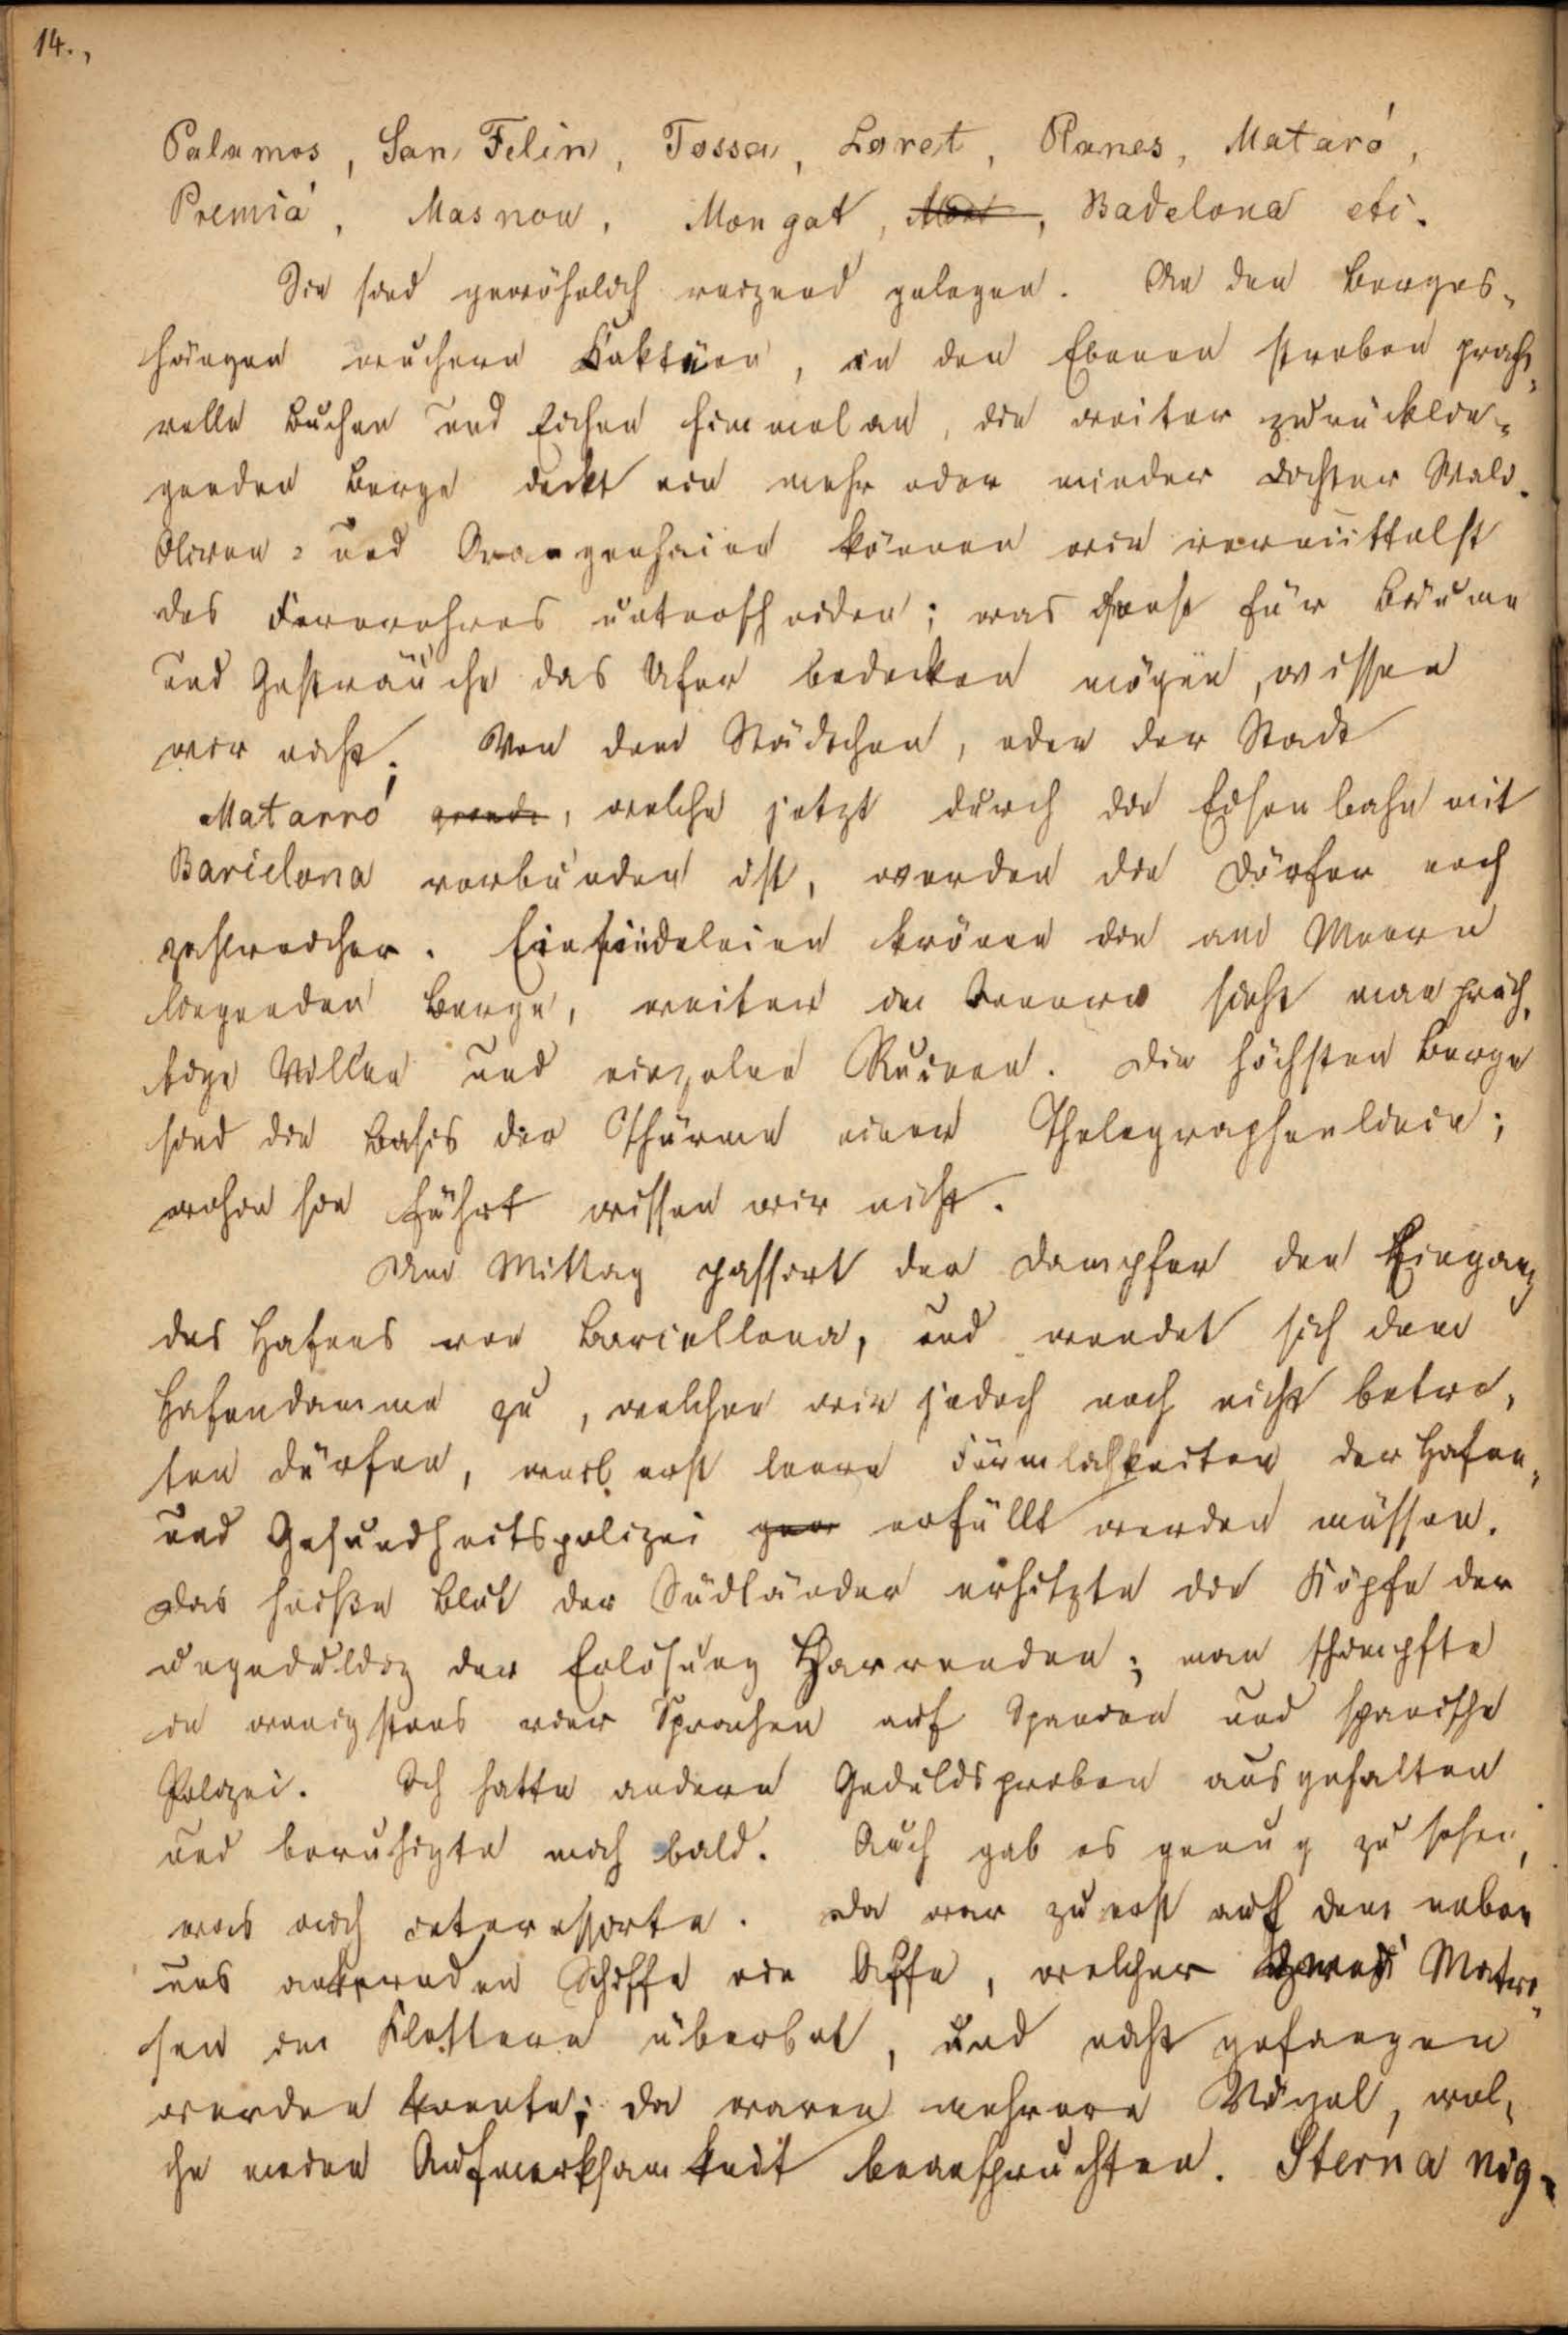 14.,
Palamos, San Felin, Tossa, Loret, Planes, Mataró,
Premiá, Masnou, Mongat, Badelona etc.
Sie sind gewöhnlich reizend gelegen. An den Berges-
hängen wuchern Kaktuen, in den Ebenen streben pracht-
volle Buchen und Eichen himmelan, die weiter zurücklie-
genden Berge deckt ein mehr oder minder dichter Wald.
Oliven- und Orangenhaine können wir vermittelst
des Fernrohres unterscheiden; was sonst für Bäume
und Gesträuche das Ufer bedecken mögen, wissen
wir nicht. Von dem Städtchen, oder der Stadt
Matarró, welche jetzt durch die Eisenbahn mit
Barcelona verbunden ist, werden die Dörfer noch
zahlreicher. Einsiedeleien krönen die am Meere
liegenden Berge, weiter im Innern sieht man präch-
tige Villen und einzelne Ruinen. Die höchsten Berge
sind die Basis der Thürme einer Thelegraphenlinie;
wohin sie führt wissen wir nicht.
Am Mittag passirt der Dampfer den Eingang
des Hafens von Barcellona, und wendet sich dem
Hafendamme zu, welchen wir jedoch noch nicht betre-
ten dürfen, weil erst leere Förmlichkeiten der Hafen-
und Gesundheitspolizei erfüllt werden müssen.
Das heiße Blut der Südländer erhitzte die Köpfe der
ungeduldig der Erlösung Harrenden; man schimpfte
in wenigstens vier Sprachen auf Spanien und spanische
Polizei. Ich hatte andere Geduldsproben ausgehalten
und beruhigte mich bald. Auch gab es genug zu sehen,
was mich interessirte. Da war zuerst auf dem neben
uns ankernden Schiffe ein Affe, welcher zwei Matro-
sen im Klettern überbot, und nicht gefangen
werden konnte; da waren mehrere Vögel, wel-
che meine Aufmerksamkeit beanspruchten. Sterna nig-